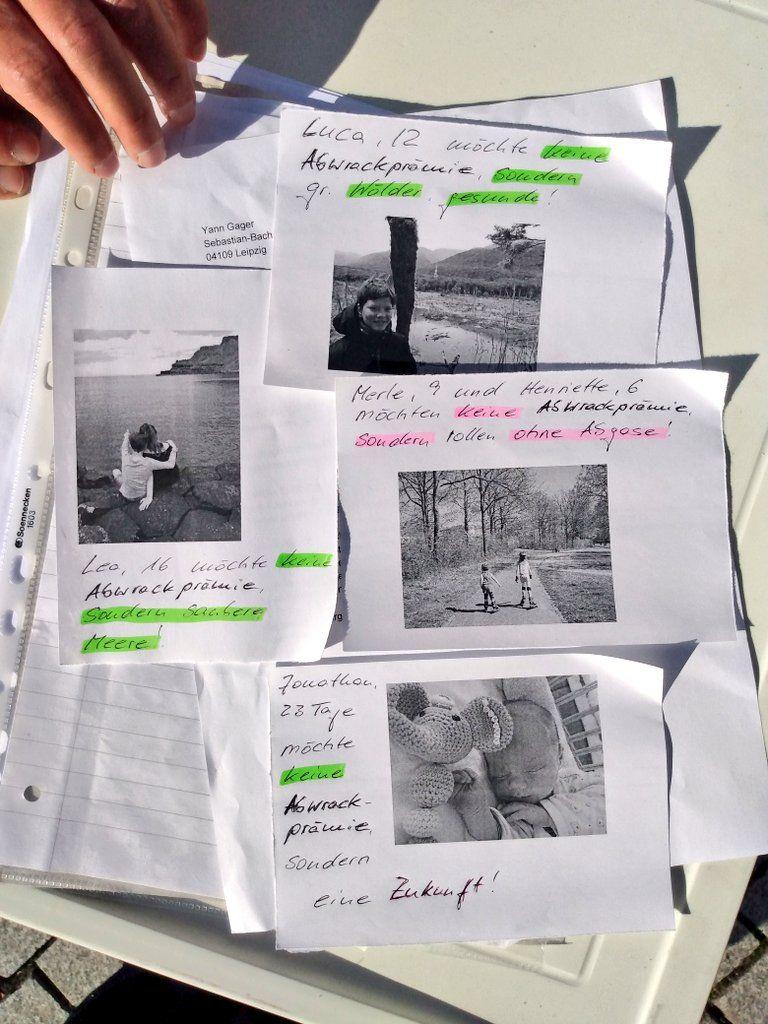 Luca, 12 möchte keine
Abwrackprämie, sondern
gr. Wälder, gesunde!
Yann Gager
Sebastian-Bach
04109 Leipzig
Merle, 9 und Henriette, 6
möchten keine Abwrackprämie,
sondern rollen ohne Abgase!
Soennecken
1603
Leo, 16 möchte keine
Abwrackprämie,
sondern saubere
Meere!
rg
Jonathan,
23 Tage
möchte
keine
Abwrack-
prämie,
sondern
eine Zukunft!